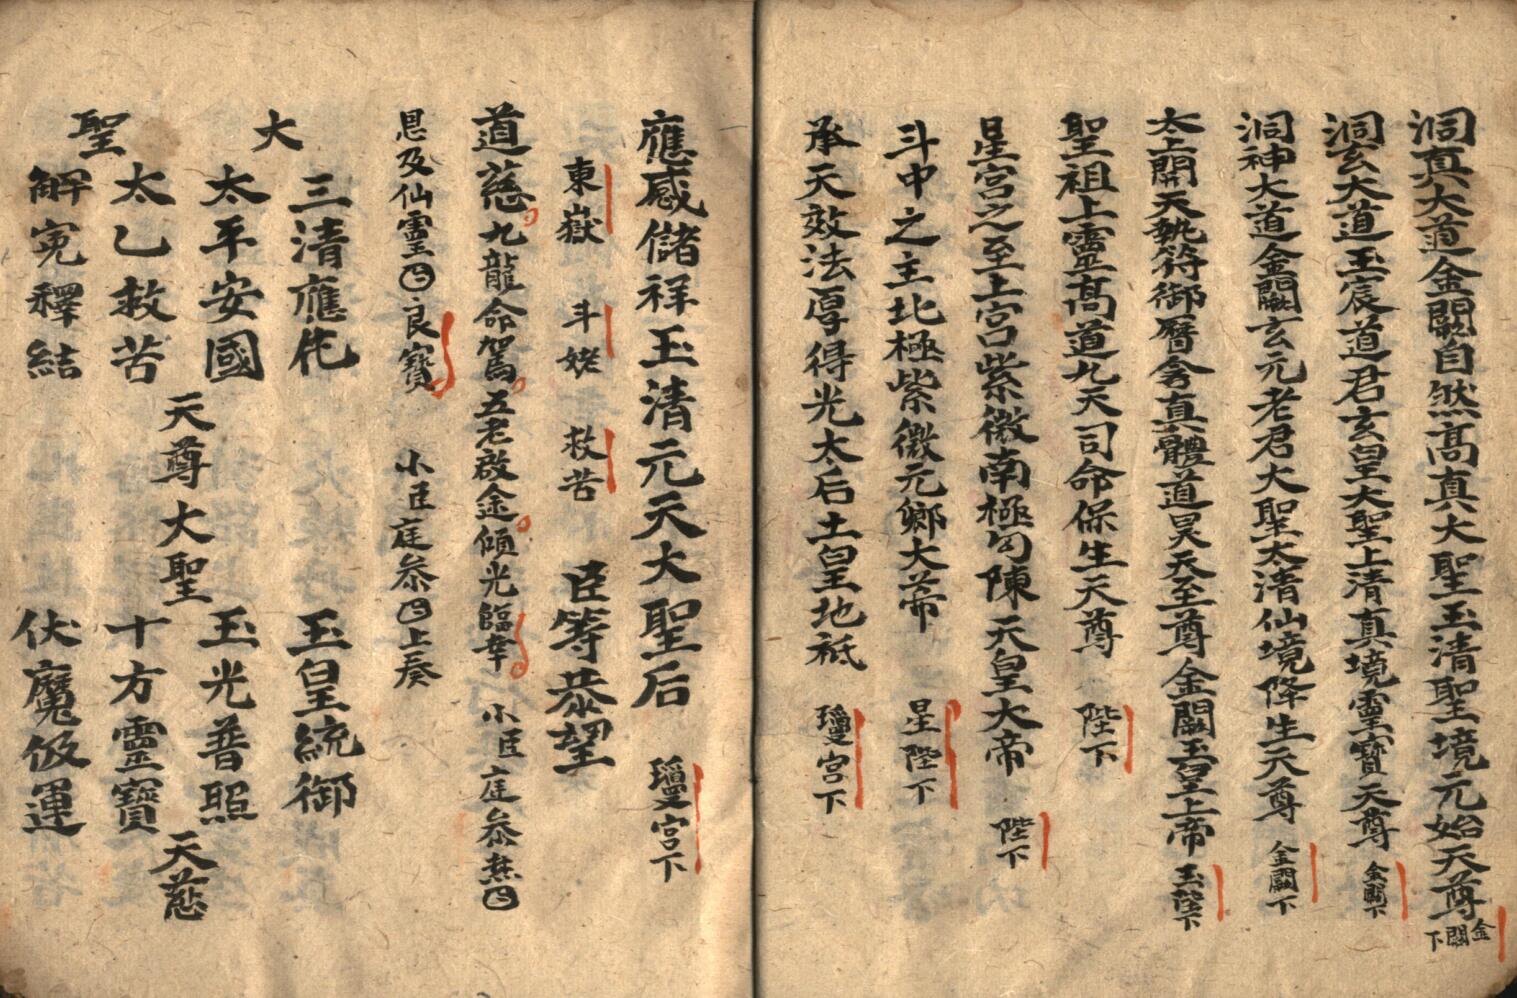 洞真大道金闕自然高真大聖玉清聖境元始天尊 金闕下
洞玄大道玉宸道君玄皇大聖上清真境靈寶天尊 金闕下
洞神大道金闕玄元老君大聖太清仙境降生天尊 金闕下
太上開天執符御曆含真體道昊天至尊金闕玉皇上帝 玉陛下
聖祖上靈高道九天司命保生天尊 陛下
星宮之至上宮紫微南極勾陳天皇大帝 陛下
斗中之主北極紫微元卿大帝 星陛下
承天效法厚得光大后土皇地祇 瓊宮下
應感儲祥玉清元天大聖后 瓊宮下
東嶽 斗姥 救苦 臣等恭望
道慈九龍命駕五老啟途傾光臨幸 小臣庭参
恩及仙靈 良寶 小臣庭参 上奏
大
聖
三清應化
太平安國
太乙救苦
解冤釋結
天尊大聖
玉皇統御
玉光普照
十方靈寶
伏魔伋運
天慈